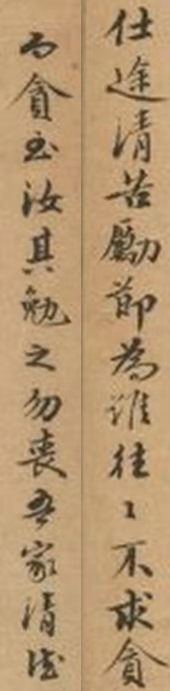 仕途清苦勵節為誰往〻不求貪
而貪玉汝其勉之勿喪吾家清德